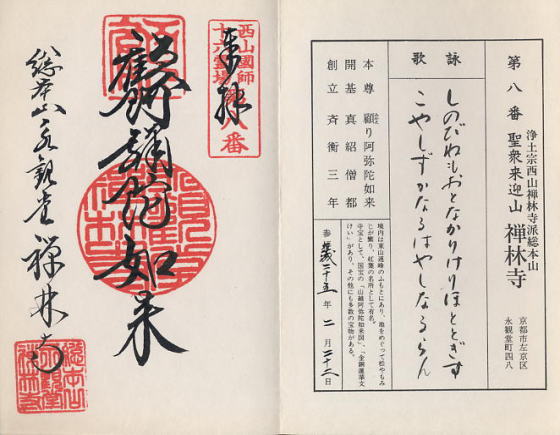 第八番 聖衆来迎山 禅林寺
浄土宗西山禅林寺派総本山
京都市左京区
永観堂町四八
詠歌
しのびねもおとなかりけりほとゝぎす
こやしずかなるはやしなるらん
本尊 顧り阿弥陀如来
開基 真紹僧都
創立 斉衡三年
境内は東山連峰のふもとにあり、池をめぐって松やもみ
じが繁り、紅葉の名所として有名。
寺宝として、国宝の「山越阿弥陀如来図」、「金銅蓮華文
けい」があり、その他にも多数の宝物がある。
参 平成二十五年 二月二十二日
西山國師
十六霊場
第八番
奉拝
顧阿弥陀如来
総本山永観堂禅林寺